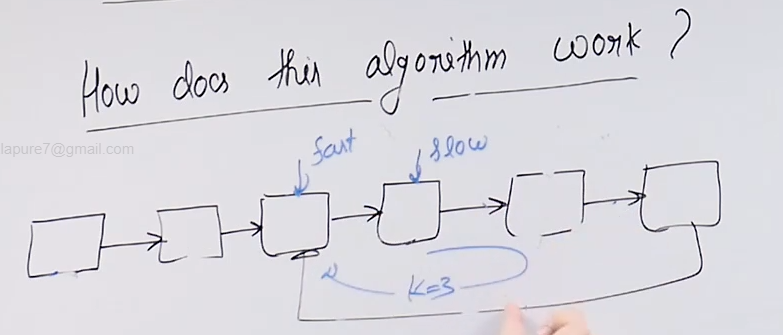 How does this algorithm work ?
lapure7@gmail.com
fast
slow
K=3